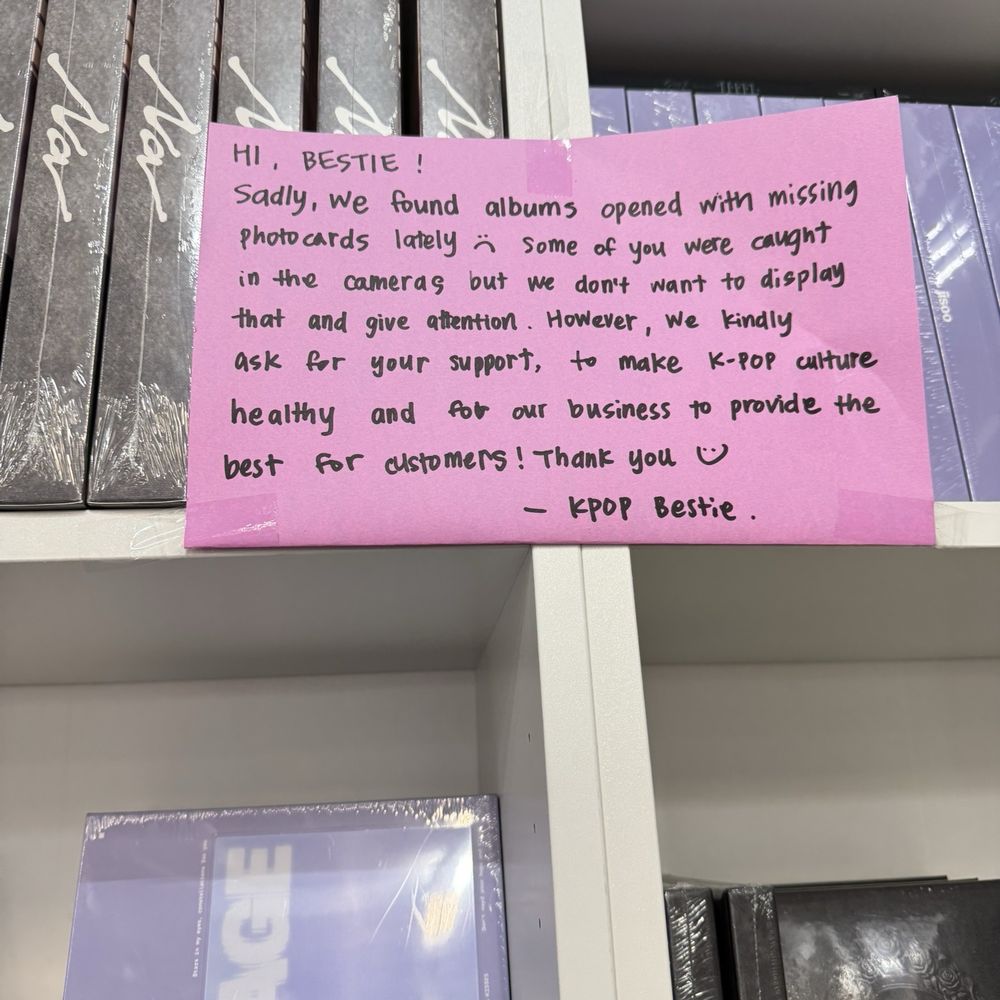 HI, BESTIE !
Sadly, we found albums opened with missing
photocards lately ☹ Some of you were caught
in the cameras but we don't want to display
that and give attention. However, we kindly
ask for your support, to make K-POP culture
healthy and for our business to provide the
best for customers! Thank you ☺
— KPOP Bestie.
jisoo
AGE